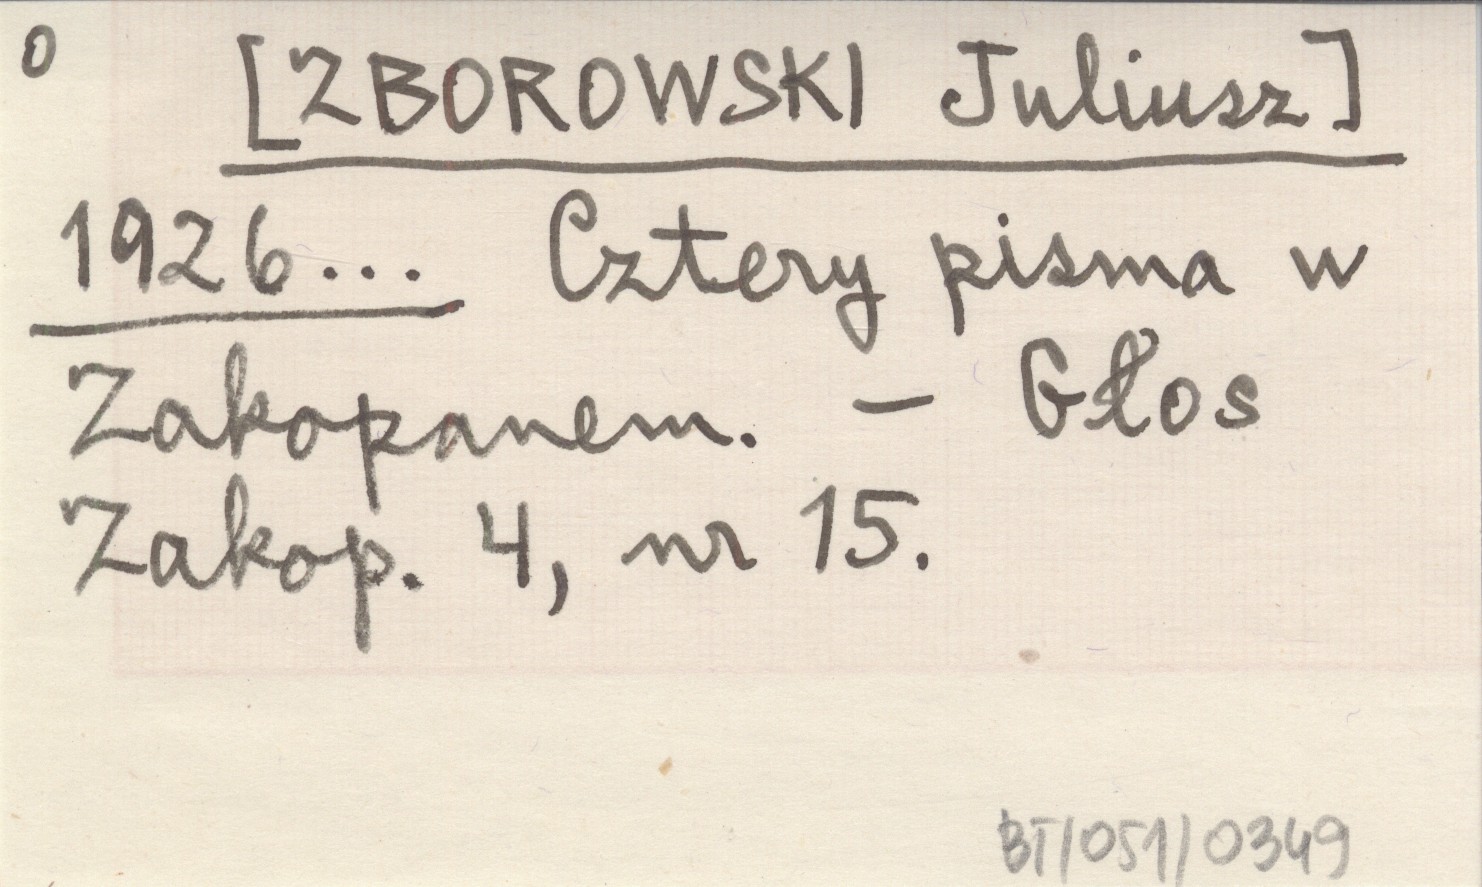 0
[ZBOROWSKI Juliusz]
1926... Cztery pisma w
Zakopanem. – Głos
Zakop. 4, nr 15.
BT/051/0349